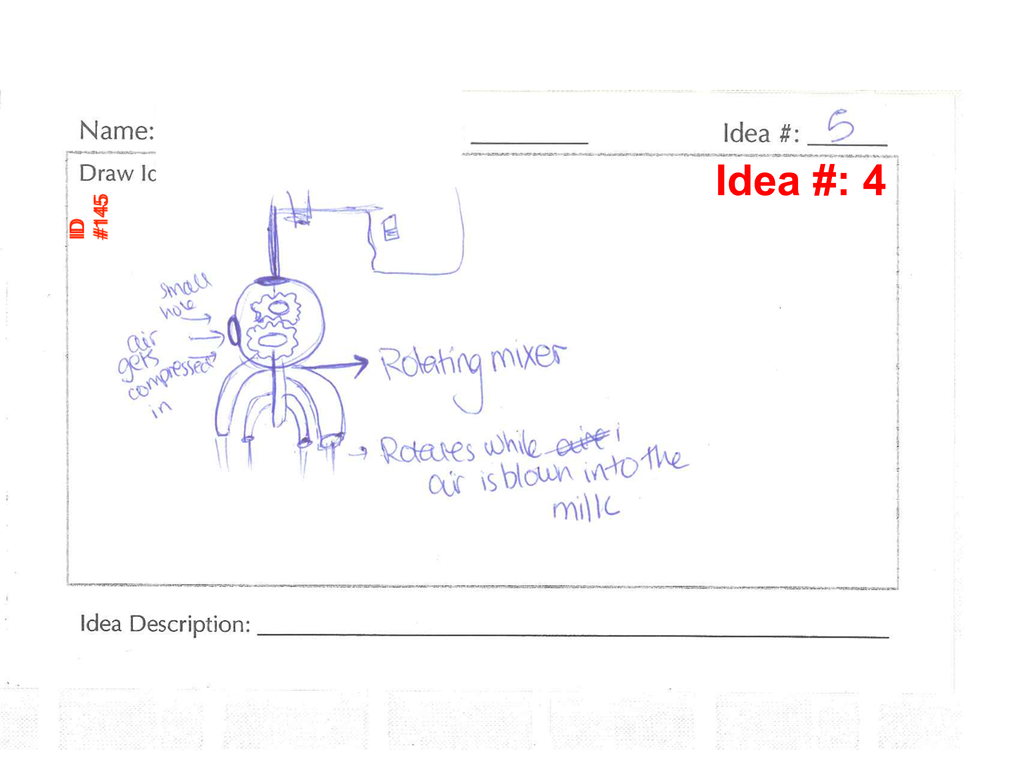 Name:
Idea #: 5
Draw Id
Idea #: 4
IID
#145
small
hole
air
gets
compressed
in
Rotating mixer
Rotates while
air is blown into the
milk
Idea Description: